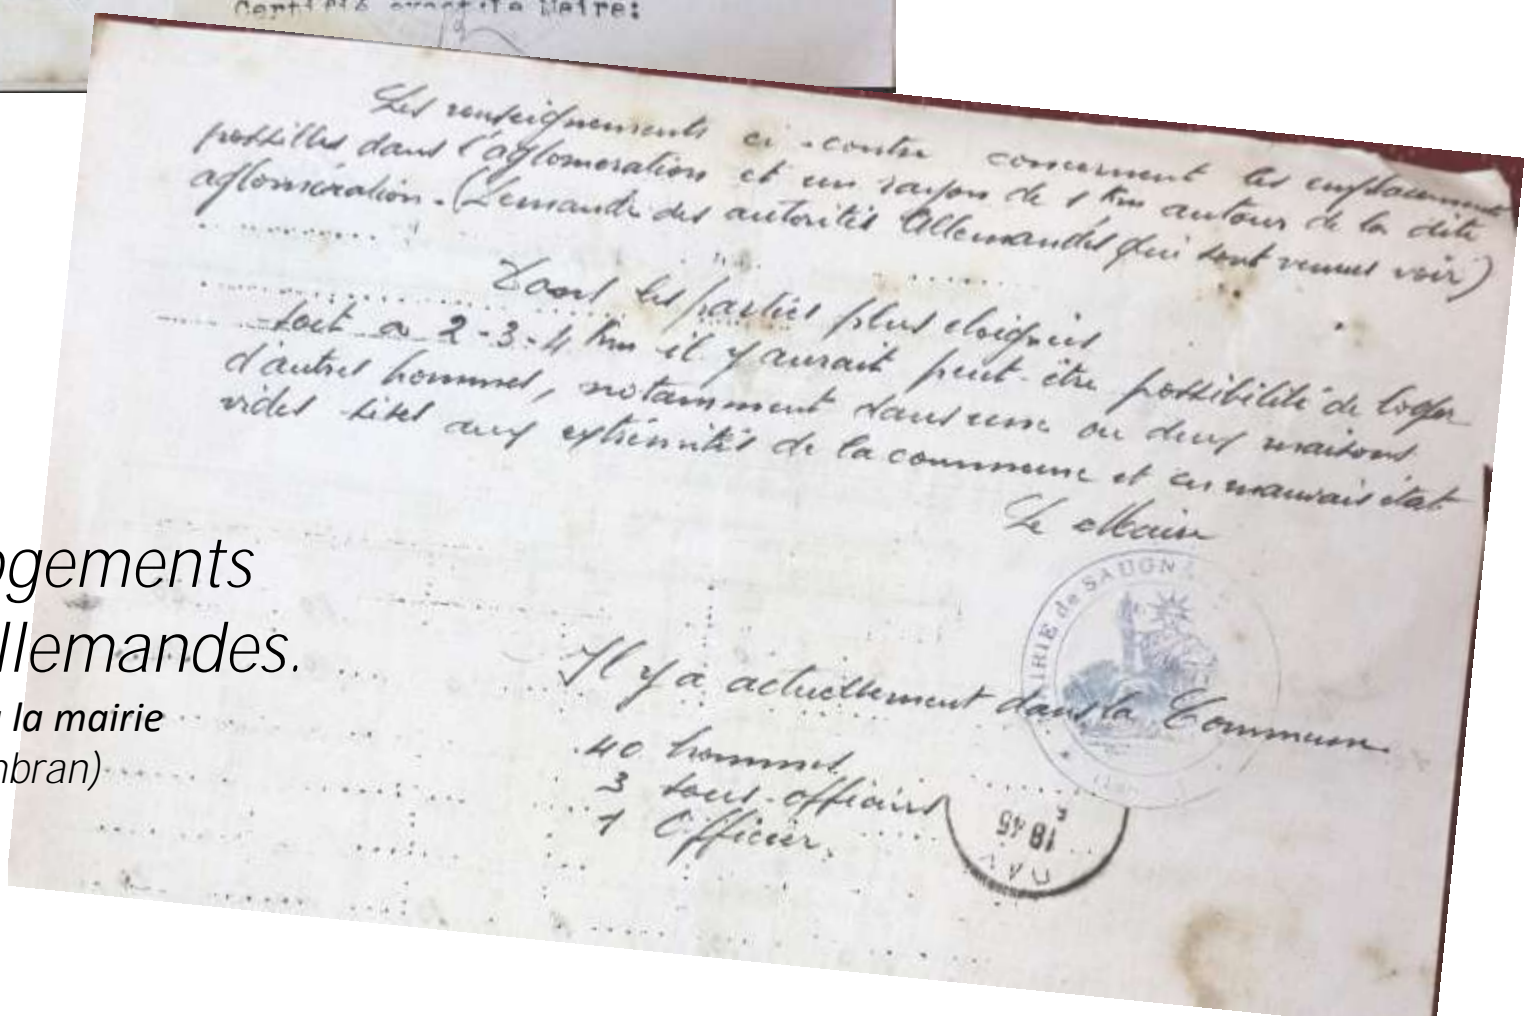 Certifié exact: le Maire:
Les renseignements ci-contre concernent les emplacements
possilles dans l'aglomeration et un rayon de 1 Km autour de la dite
aglomération. (Demande des autorités Allemandes qui sont venues voir)
Dans les parties plus éloignées
soit a 2-3-4 Km il y aurait peut-être possibilité de loger
d'autres hommes, notamment dans une ou deux maisons
vides sises aux extrémités de la commune et en mauvais état
Le Maire
MAIRIE de SAUGN
ogements
llemandes.
la mairie
nbran)
Il y a actuellement dans la Commune
40 hommes
3 sous-officiers
1 Officier.
18 45
DAX